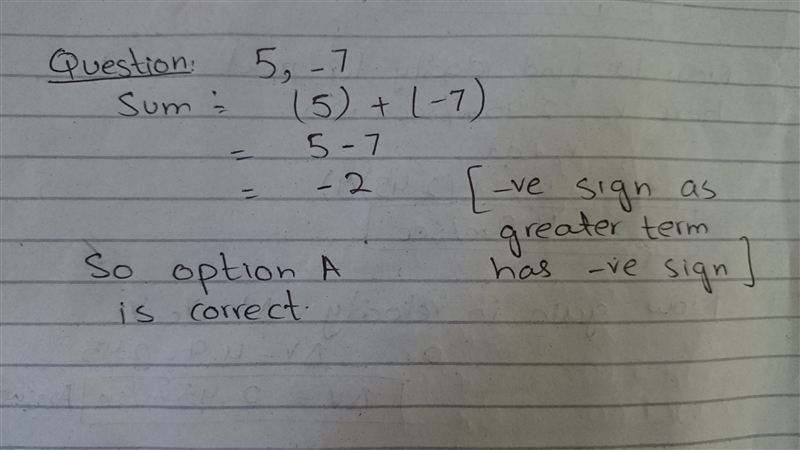 Question: 5, -7
Sum = (5) + (-7)
= 5 - 7
= -2 [-ve sign as
greater term
has -ve sign]
So option A
is correct.